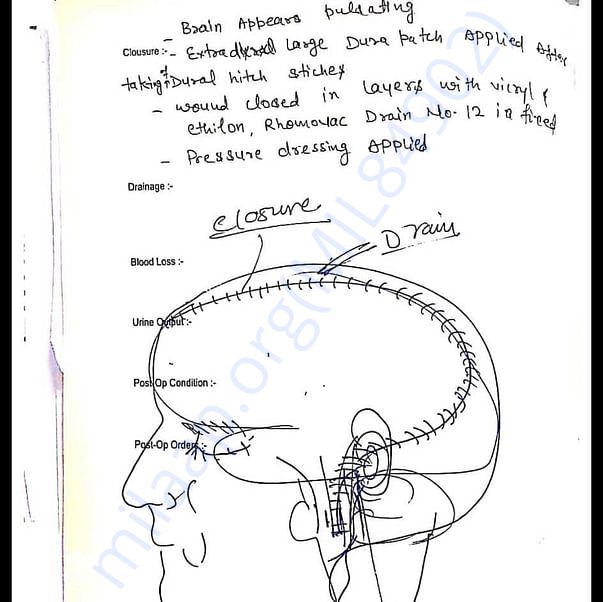 - Brain Appears pulsating
Clousure :- - Extradural large Dura patch APPLIED After
taking Dural hitch stiches
- wound closed in layers with vicryl &
ethilon, Rhomovac Drain No- 12 is fixed
- Pressure dressing APPlied
Drainage :-
closure
Drain
Blood Loss :-
Urine Output :-
Post Op Condition :-
Post-Op Orders :-
milaap.org(MIL84902)